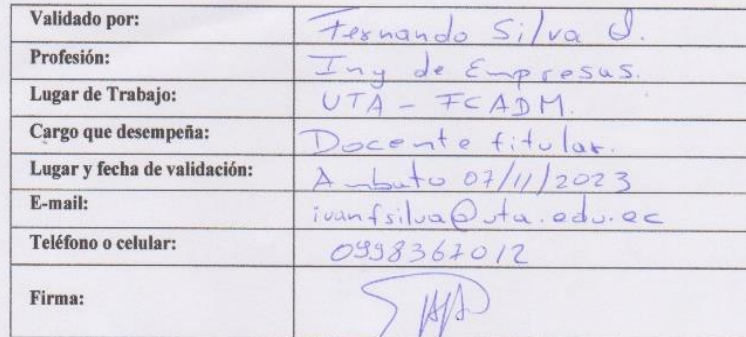 Validado por: Fernando Silva O.
Profesión: Ing de Empresas.
Lugar de Trabajo: UTA - FCADM.
Cargo que desempeña: Docente titular.
Lugar y fecha de validación: Ambato 07/11/2023
E-mail: ivanfsilva@uta.edu.ec
Teléfono o celular: 0998367012
Firma: